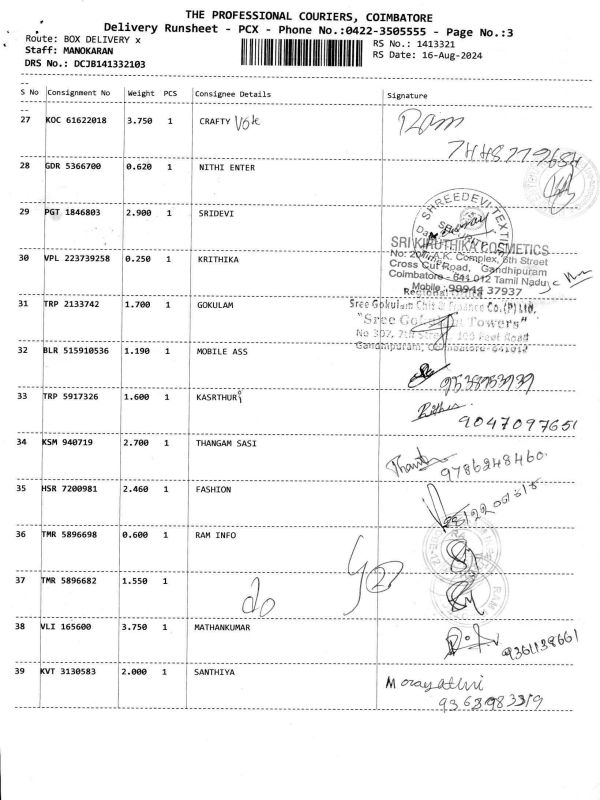 THE PROFESSIONAL COURIERS, COIMBATORE
Delivery Runsheet - PCX - Phone No.:0422-3505555 - Page No.:3
Route: BOX DELIVERY x
RS No.: 1413321
Staff: MANOKARAN
RS Date: 16-Aug-2024
DRS No.: DCJB141332103
S No Consignment No Weight PCS Consignee Details Signature
27 KOC 61622018 3.750 1 CRAFTY Ram
28 GDR 5366700 0.620 1 NITHI ENTER
SHREEDEVI TEXTI
29 PGT 1846803 2.900 1 SRIDEVI
SRI KIRUTHIKA COSMETICS
30 VPL 223739258 0.250 1 KRITHIKA
A.K. Complex, 6th Street
Cross Cut Road, Gandhipuram
Coimbatore - 641 012 Tamil Nadu
Mobile : 99944 37937
31 TRP 2133742 1.700 1 GOKULAM
Sree Gokulam Chit & Finance Co.(P) Ltd,
"Sree Gokulam Towers"
No 307, 7th Street, 100 Feet Road
Gandhipuram, Coimbatore-641012
32 BLR 515910536 1.190 1 MOBILE ASS
33 TRP 5917326 1.600 1 KASRTHURi
9047097651
34 KSM 940719 2.700 1 THANGAM SASI
9786248460.
35 HSR 7200981 2.460 1 FASHION
36 TMR 5896698 0.600 1 RAM INFO
37 TMR 5896682 1.550 1 do
38 VLI 165600 3.750 1 MATHANKUMAR
9361138661
39 KVT 3130583 2.000 1 SANTHIYA